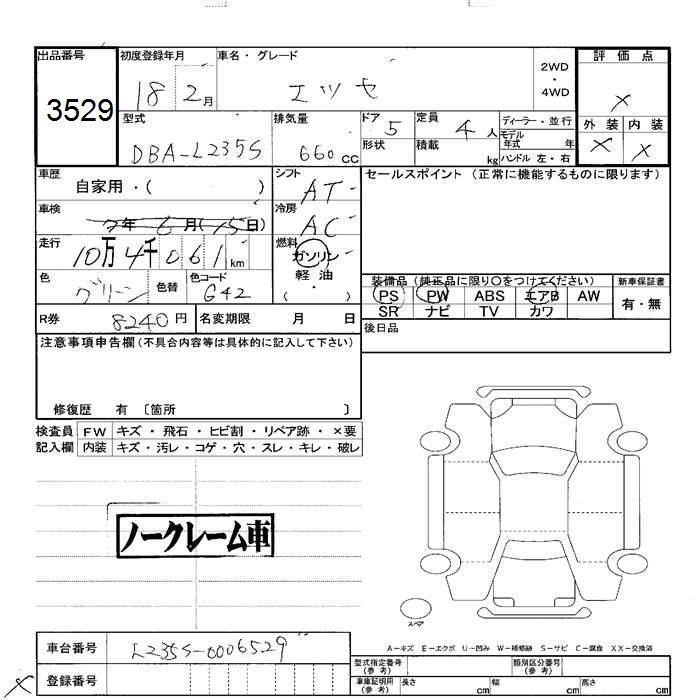 出品番号 初度登録年月 車名・グレード 評価点
3529 18 2月 エッセ 2WD・4WD ×
型式 排気量 ドア 定員 ディーラー・並行 外装 内装
DBA-L235S 660cc 5 4人 モデル年式 年 × ×
形状 積載 kg ハンドル 左・右
車歴 シフト セールスポイント (正常に機能するものに限ります)
自家用・( ) AT
車検 7年6月(15日) 冷房 AC
走行 10万4千061km 燃料 ガソリン 軽油・( )
色 グリーン 色替 色コード G42
装備品 (純正品に限り〇をつけてください) 新車保証書
PS PW ABS エアB AW 有・無
SR ナビ TV カワ
R券 8240円 名変期限 月 日 後日品
注意事項申告欄 (不具合内容等は具体的に記入して下さい)
修復歴 有 〔箇所 〕
検査員 FW キズ・飛石・ヒビ割・リペア跡・×要
記入欄 内装 キズ・汚レ・コゲ・穴・スレ・キレ・破レ
ノークレーム車
スペア
A-キズ E-エクボ U-凹み W-補修跡 S-サビ C-腐食 XX-交換済
車台番号 L235S-0006529
型式指定番号 (参考) 類別区分番号 (参考)
× 登録番号
車庫証明用 (参考) 長さ cm 幅 cm 高さ cm